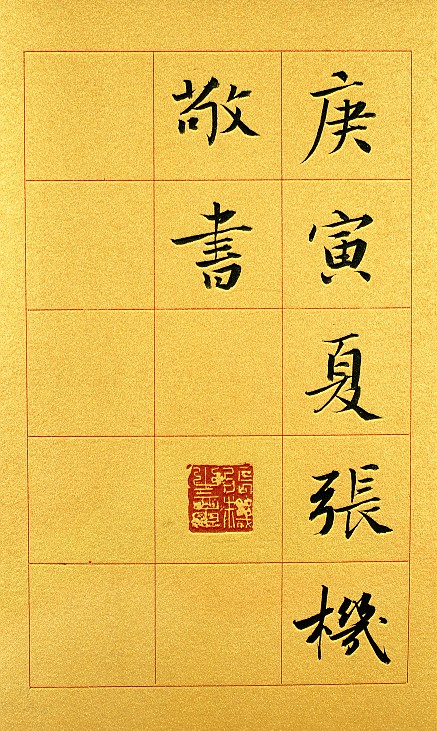 庚寅夏張機
敬書